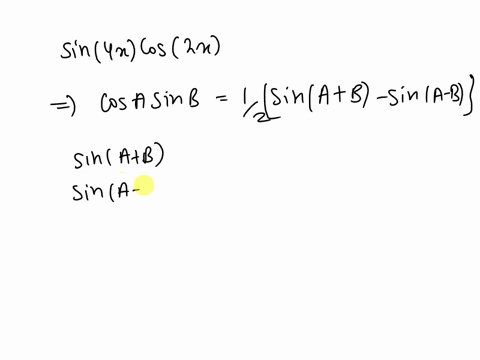 sin(4x)cos(2x)
=) cosA sinB = 1/2[sin(A+B) - sin(A-B)}
sin(A+B)
sin(A-